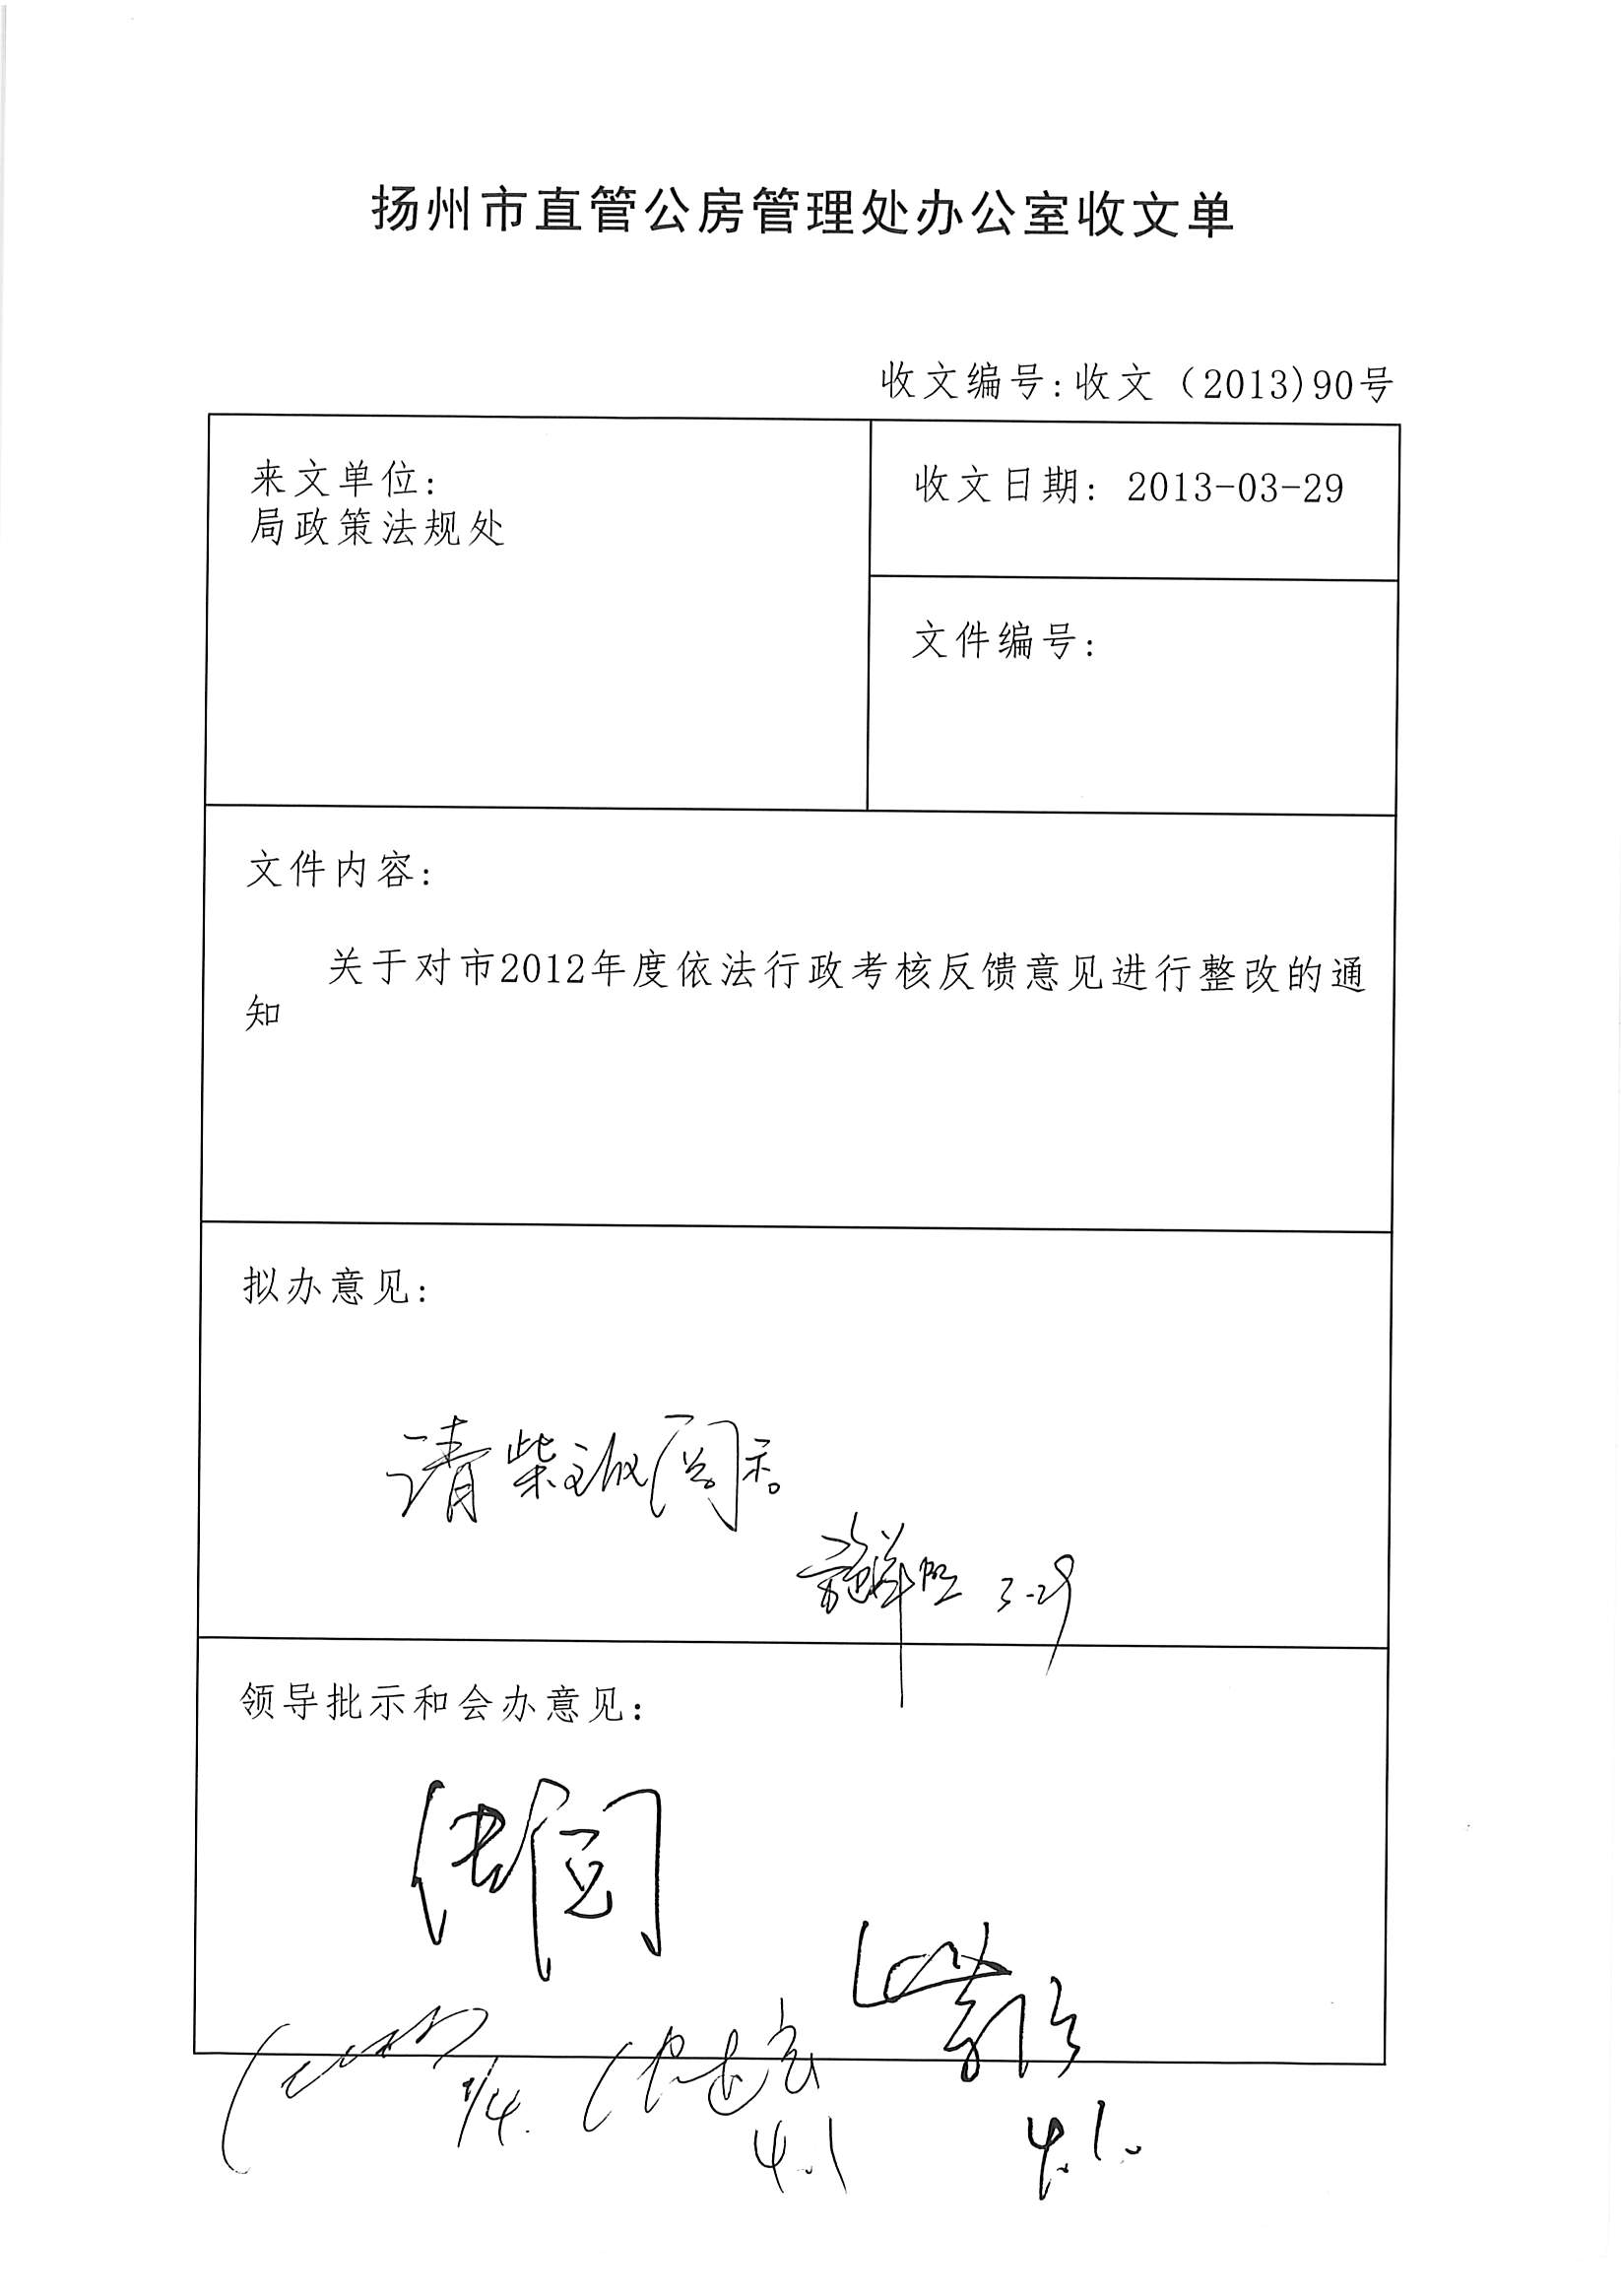 扬州市直管公房管理处办公室收文单
收文编号:收文（2013)90号
来文单位:
局政策法规处
收文日期: 2013-03-29
文件编号:
文件内容:
关于对市2012年度依法行政考核反馈意见进行整改的通
知
拟办意见:
请柴主任阅示。
3-29
领导批示和会办意见:
传阅
1/4.
4.1
4.1.